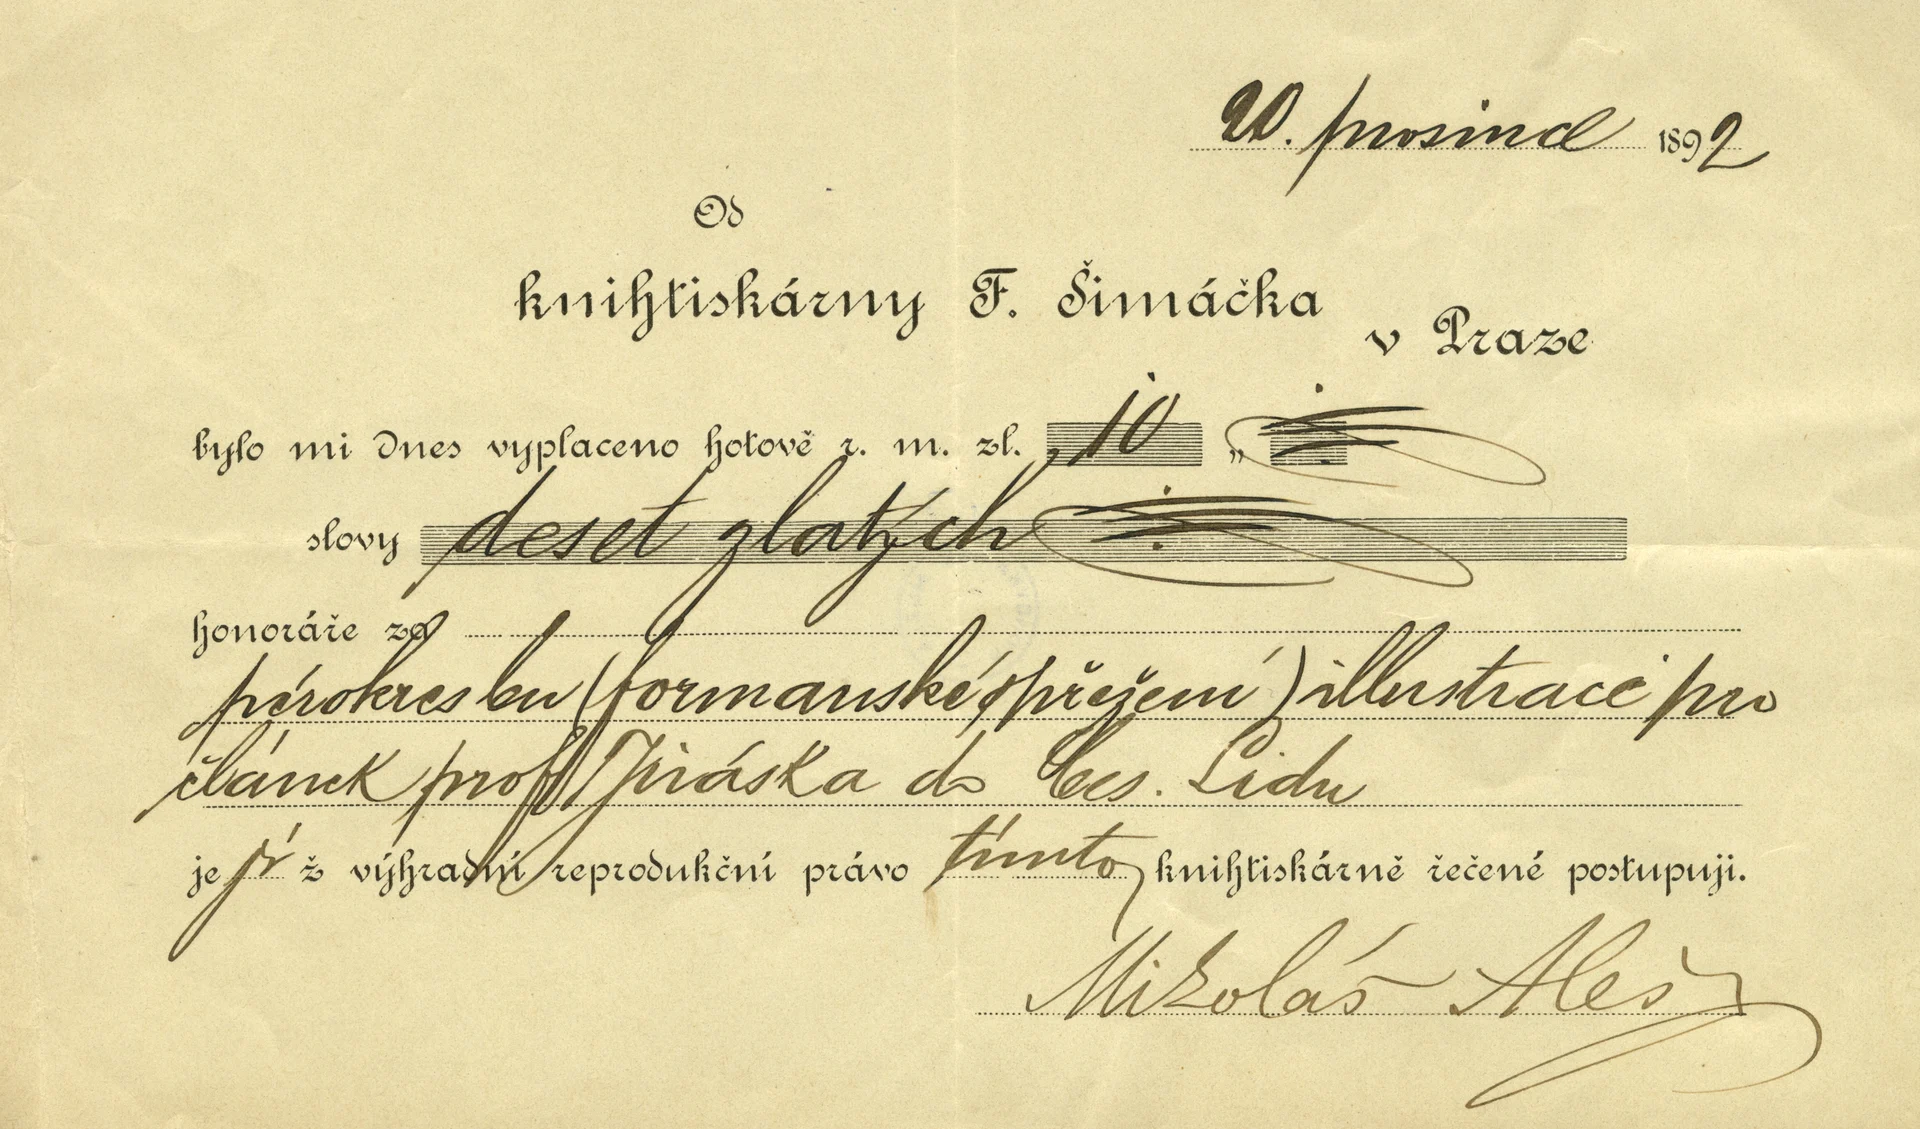 20. prosince 1892
Od
knihtiskárny F. Šimáčka
v Praze
bylo mi dnes vyplaceno hotově r. m. zl. 10 „
slovy deset zlatých
honoráře za
pérokresbu (formanské spřežení) illustraci pro
článek prof. Jiráska do Čes. Lidu
je jíž výhradní reprodukční právo tímto knihtiskárně řečené postupuji.
Mikoláš Aleš